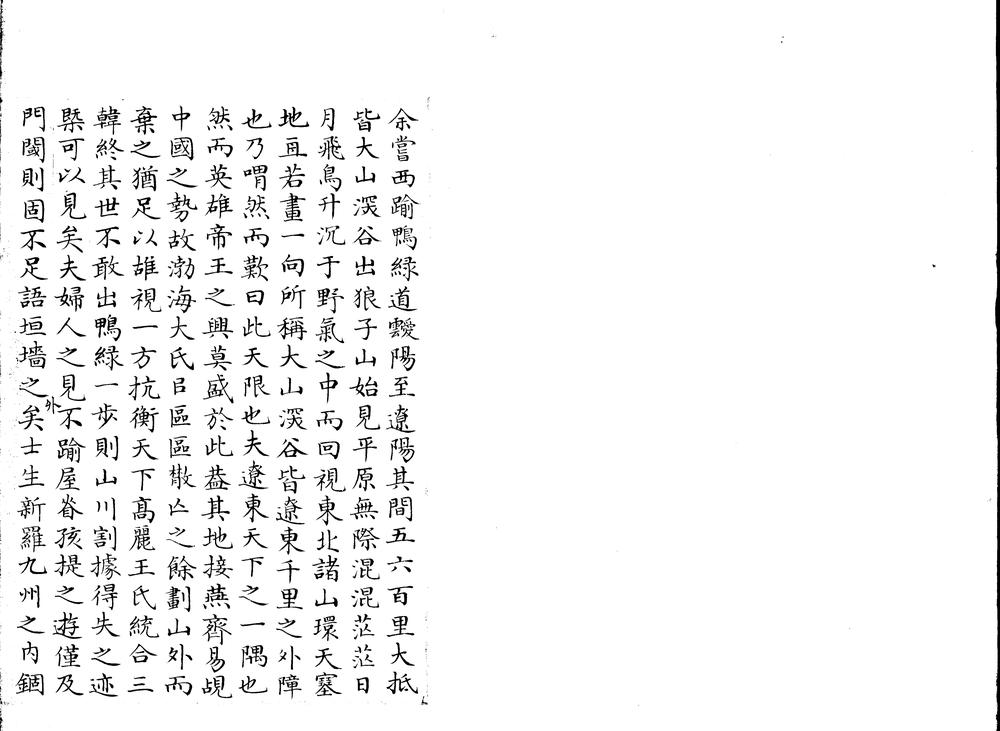 余嘗西踰鴨綠道靉陽至遼陽其間五六百里大抵
皆大山深谷出狼子山始見平原無際混混茫茫日
月飛鳥升沉于野氣之中而回視東北諸山環天塞
地亘若畫一向所稱大山深谷皆遼東千里之外障
也乃喟然而歎曰此天限也夫遼東天下之一隅也
然而英雄帝王之興莫盛於此盖其地接燕齊易覘
中國之勢故渤海大氏㠯區區散亾之餘劃山外而
棄之猶足以雄視一方抗衡天下高麗王氏統合三
韓終其世不敢出鴨綠一步則山川割據得失之迹
槩可以見矣夫婦人之見不踰屋脊孩提之遊僅及
門閾則固不足語垣墻之外矣士生新羅九州之內錮